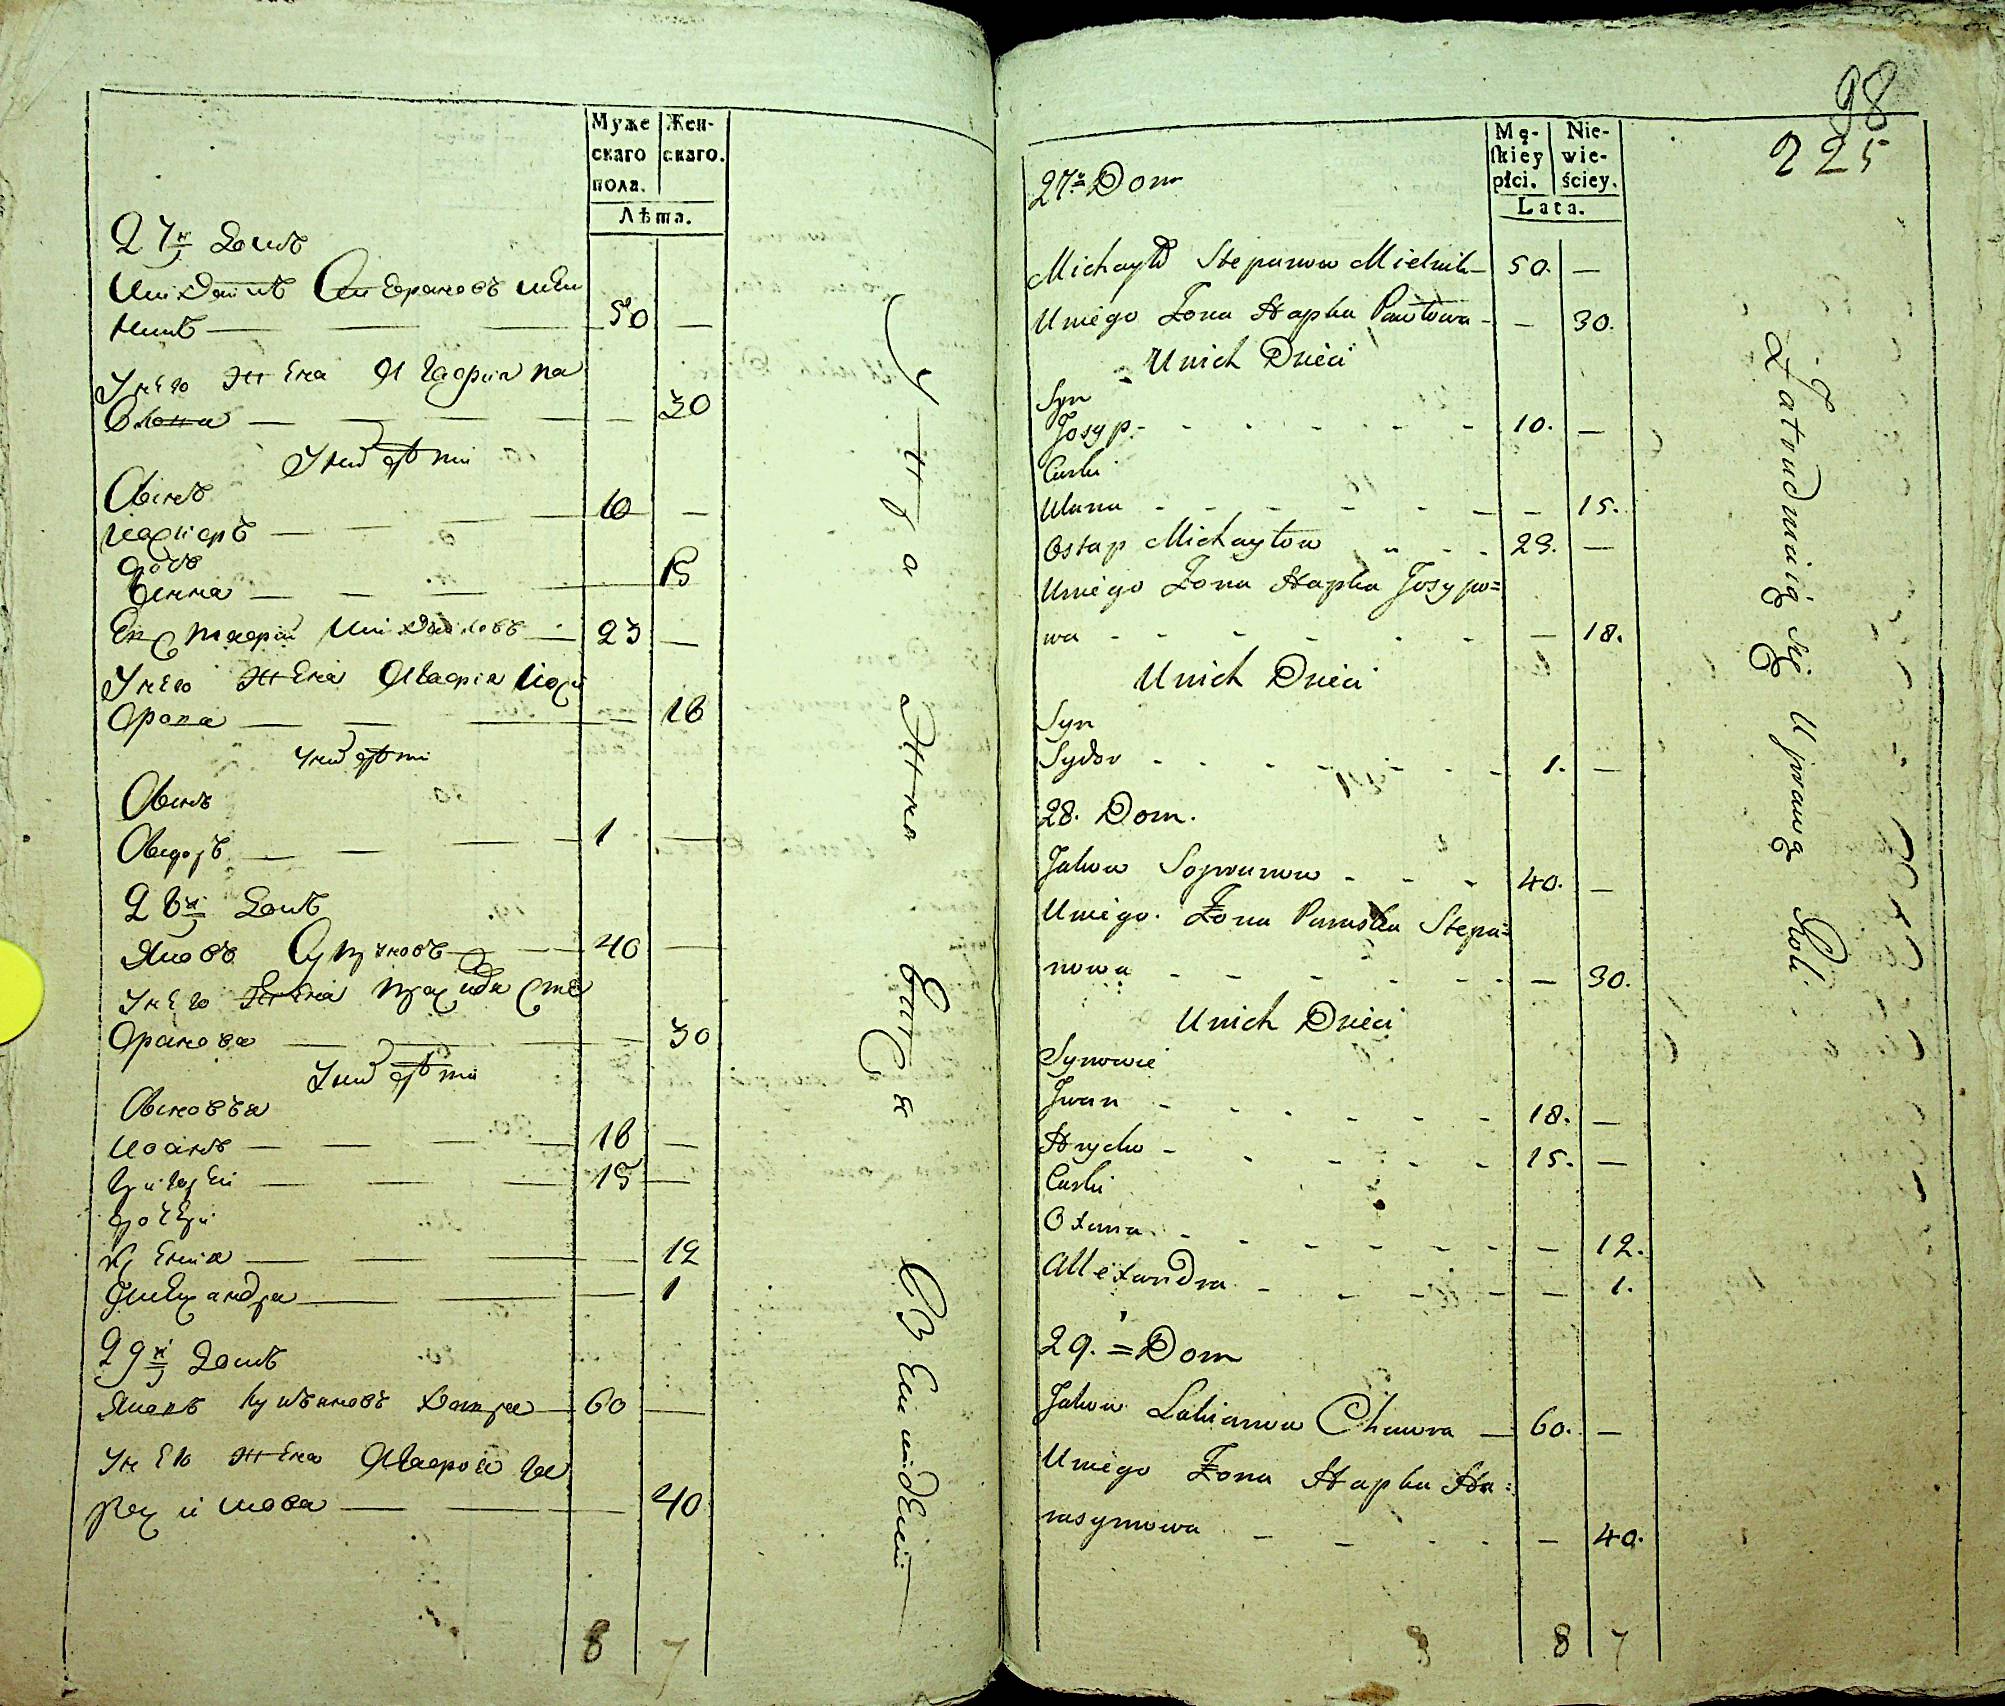 Муже
скаго
пола.
Жен-
скаго.
Лѣта.
27й Домъ
Михаилъ Степановъ Мель
никъ — 50 —
У него жена Агафия Па
влова — — 30
У них дѣти
Сынъ
Иосифъ — 10 —
дочь
Анна — — 15
Евстафий Михайловъ — 23 —
У него жена Агафия Иоси
фова — — 18
У них дѣти
Сынъ
Сидоръ — 1 —
28й Домъ
Яковъ — 40 —
У него жена Параскева Сте
фанова — — 30
У них дѣти
Сыновья
Иоанъ — 18 —
Григорей — 15 —
дочери
Ксения — — 12
Александра — — 1
29й Домъ
Яковъ Лукьяновъ Хавра — 60 —
У него жена Агафия Ге
расимова — — 40
8 7
Упражняется въ Земледелии
98
225
Mę-
ſkiey
płci.
Nie-
wie-
ściey.
Lata.
27y Dom
Michayło Stepanow Mielnik — 50. —
U niego Żona Hapka Pawłowa — — 30.
U nich Dzieci
Syn
Josyp — 10. —
Curki
Hanna — — 15.
Ostap Michayłow — 23. —
U niego Żona Hapka Josypo=
wa — — 18.
U nich Dzieci
Syn
Sydor — 1. —
28. Dom.
Jakow — 40. —
U niego Żona Paraska Stepa=
nowa — — 30.
U nich Dzieci
Synowie
Jwan — 18. —
Hryćko — 15. —
Curki
Oxana — — 12.
Alexandra — — 1.
29. = Dom
Jakow Łukianow Chawra — 60. —
U niego Żona Hapka Ha=
rasymowa — — 40.
8 7
Zatrudniaią się Uprawą Roli.